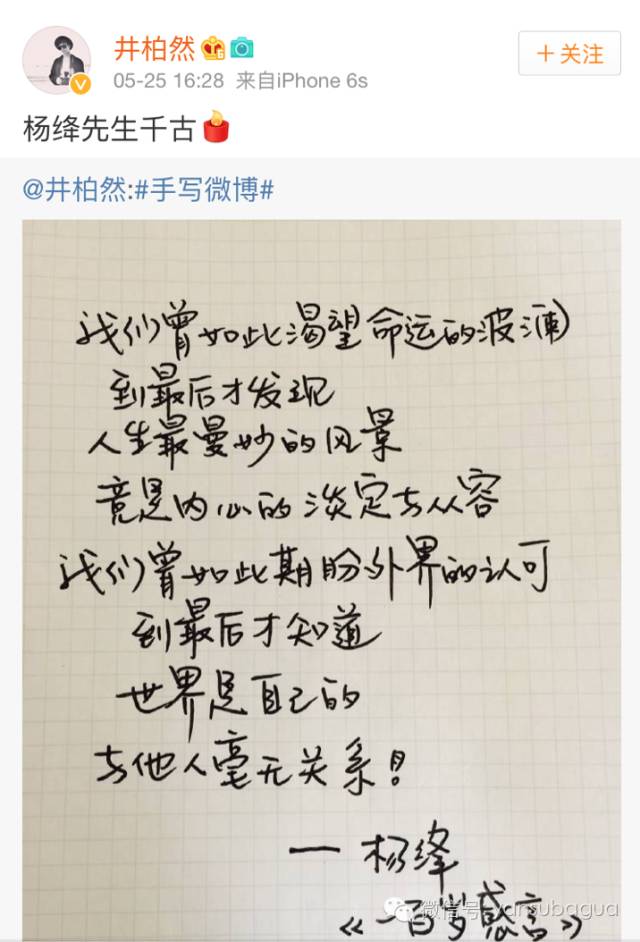 井柏然
+关注
05-25 16:28 来自iPhone 6s
杨绛先生千古
@井柏然:#手写微博#
我们曾如此渴望命运的波澜
到最后才发现
人生最曼妙的风景
竟是内心的淡定与从容
我们曾如此期盼外界的认可
到最后才知道
世界是自己的
与他人毫无关系!
— 杨绛
《一百岁感言》
微信号: yansubagua